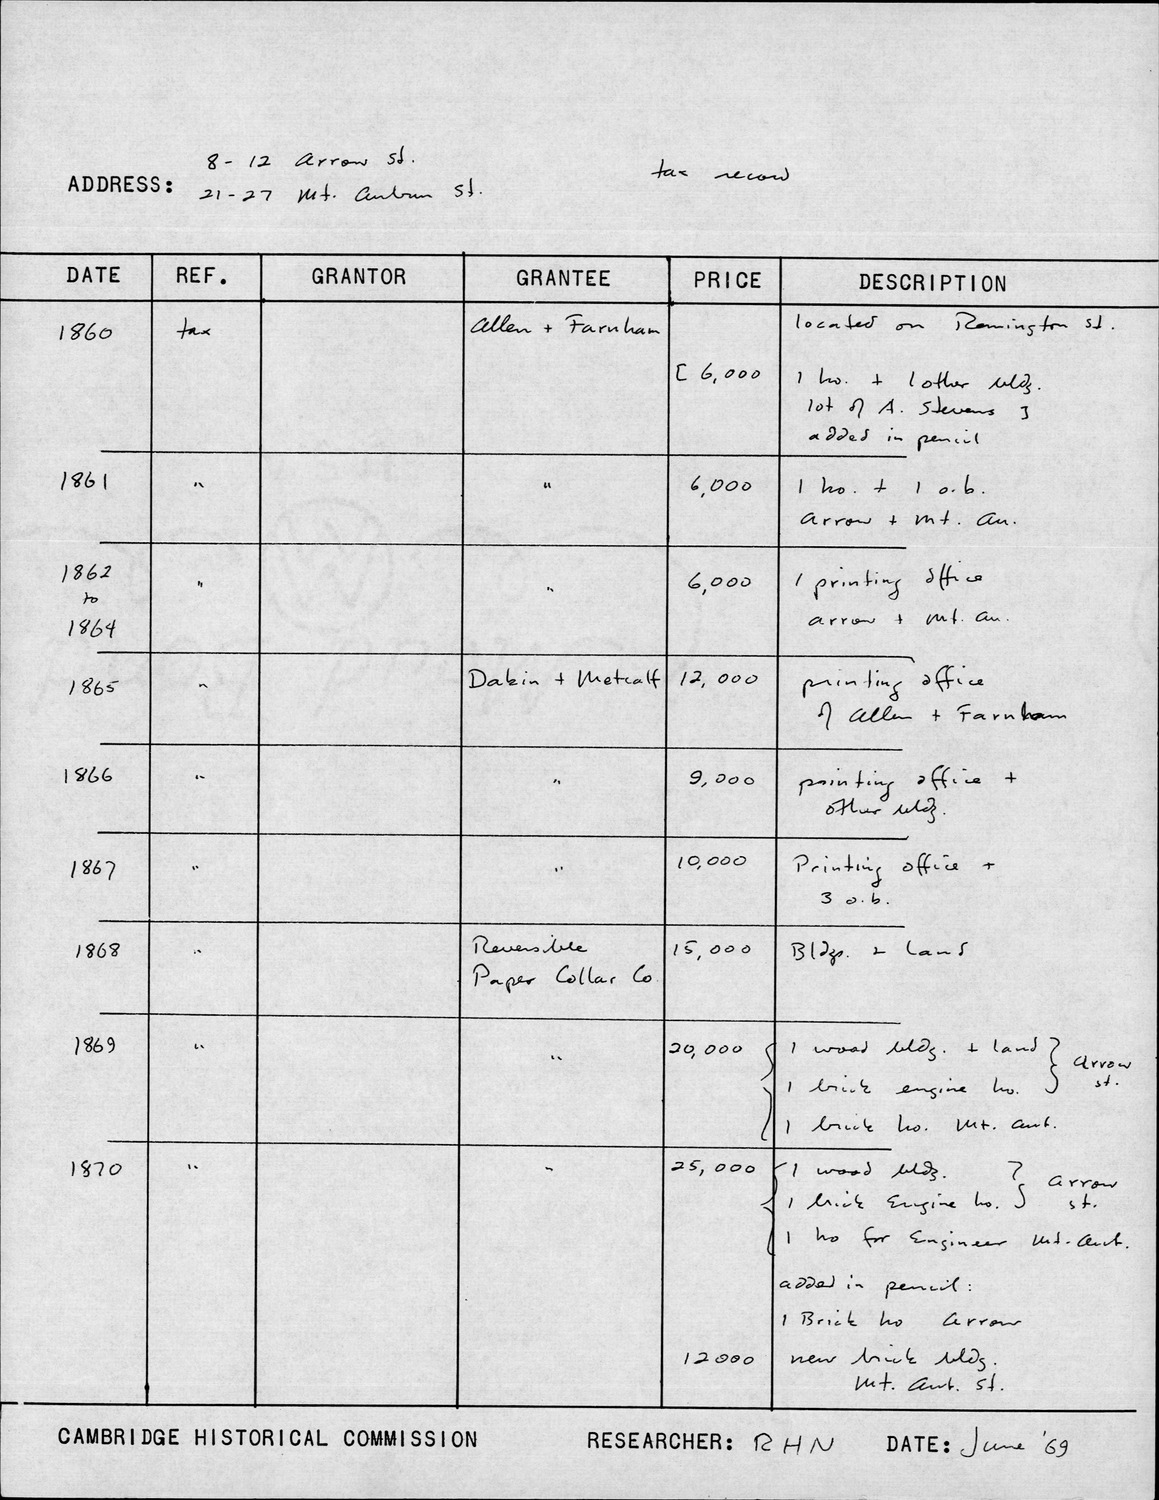 8-12 Arrow St.
ADDRESS: 21-27 Mt. Auburn St.
tax record
DATE REF. GRANTOR GRANTEE PRICE DESCRIPTION
1860 tax Allen + Farnham located on Remington St.
[ 6,000 1 ho. + 1 other bldg.
lot of A. Stevens ]
added in pencil
1861 " " 6,000 1 ho. + 1 o.b.
Arrow + Mt. Au.
1862
to
1864 " " 6,000 1 printing office
Arrow + Mt. Au.
1865 " Dakin + Metcalf 12,000 printing office
of Allen + Farnham
1866 " " 9,000 printing office +
other bldg.
1867 " " 10,000 Printing office +
3 o.b.
1868 " Reversible 15,000 Bldgs. + land
Paper Collar Co
1869 " " 20,000 { 1 wood bldg. + land } Arrow
1 brick engine ho. St.
1 brick ho. Mt. Aub.
1870 " " 25,000 { 1 wood bldg. } Arrow
1 brick Engine ho. St.
1 ho for Engineer Mt. Aub.
added in pencil:
1 Brick ho Arrow
12000 new brick bldg.
Mt. Aub. St.
CAMBRIDGE HISTORICAL COMMISSION RESEARCHER: RHN DATE: June '69